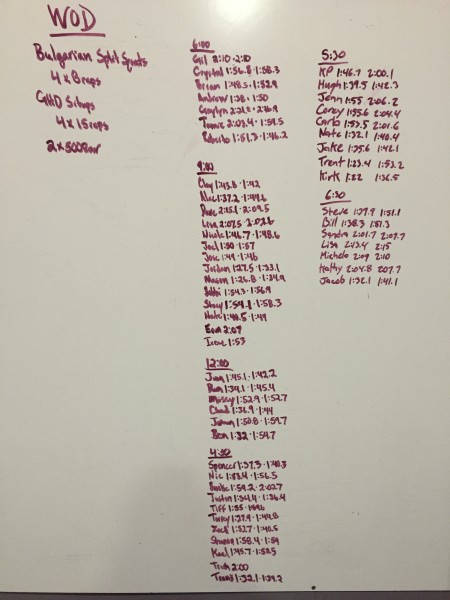 WOD
Bulgarian Split Squats
4 x 8 reps
GHD Situps
4 x 15 reps
2 x 500 Row
6:00
Gil 2:10 · 2:10
Crystal 1:56.8 · 1:58.3
Brian 1:48.5 · 1:52.9
Andrew 1:38 · 1:50
2:03.4 · 1:59.5
Roberto 1:51.3 · 1:46.2
9:00
Clay 1:43.8 · 1:42
Dave 2:15.1 · 2:09.5
Lisa 2:07.5 · 2:02.6
Nicole 1:46.7 · 1:48.6
Joel 1:50 · 1:57
Jose 1:49 · 1:46
Jordan 1:27.5 · 1:33.1
Mason 1:26.8 · 1:34.9
Bobbi 1:54.3 · 1:56.9
Stacy 1:54.1 · 1:58.3
Nate 1:40.5 · 1:49
2:07
Irene 1:53
12:00
Juan 1:45.1 · 1:42.2
Pam 1:34.1 · 1:45.4
Missy 1:52.9 · 1:52.7
Chad 1:36.9 · 1:44
1:50.8 · 1:59.7
Ben 1:32 · 1:54.7
4:30
Spencer 1:37.3 · 1:40.3
Nic 1:53.4 · 1:56.5
1:59.2 · 2:02.7
Justin 1:34.4 · 1:36.4
Tiff 1:55
1:27.9 · 1:44.8
Zach 1:32.7 · 1:40.5
Sharon 1:58.4 · 1:59
Karl 1:45.7 · 1:52.5
Trish 2:00
Travis 1:32.1 · 1:39.2
5:30
KP 1:46.7 2:00.1
Hugh 1:39.5 1:42.3
Jenn 1:55 2:06.2
Corey 1:55.6 2:04.4
Carla 1:53.5 2:01.6
Nate 1:32.1 1:40.4
Jake 1:35.6 1:42.1
Trent 1:23.4 1:53.2
Kirk 1:22 1:36.5
6:30
Steve 1:37.9 1:51.1
Bill 1:38.3 1:51.3
Sandra 2:01.7 2:07.7
Lisa 2:13.4 2:15
Michele 2:09 2:10
Hatty 2:04.8 2:07.7
Jacob 1:32.1 1:41.1